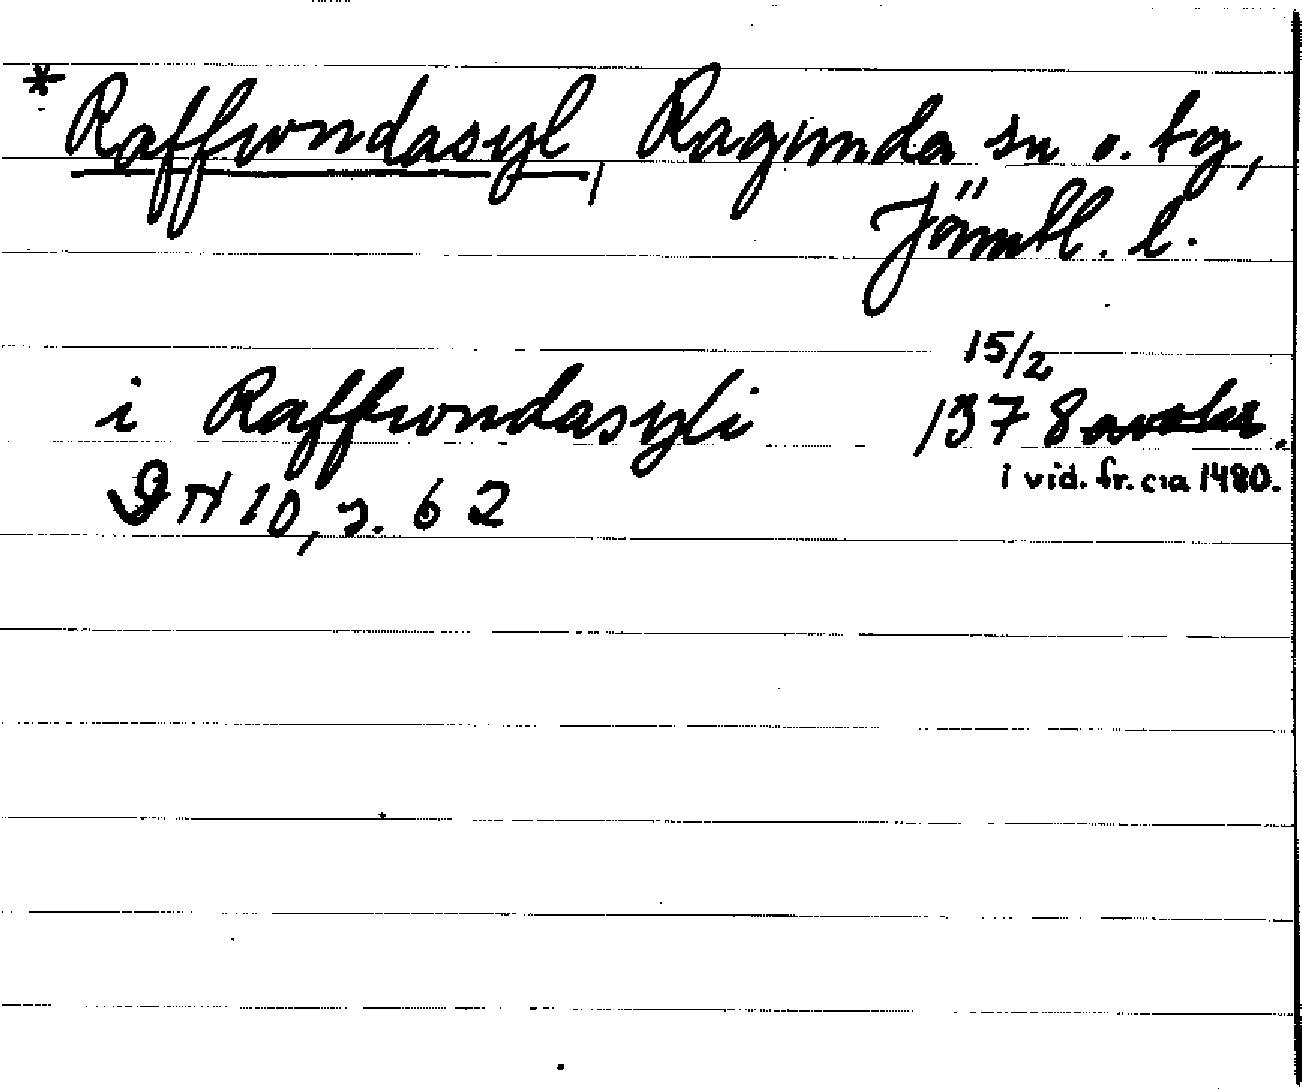 * Raffwndasyl, Ragunda sn o. tg,
Jämtl. l.
i Raffwndasyli 15/2 1378 avskr.
i vid. fr. c:a 1480.
DN 10, s. 62